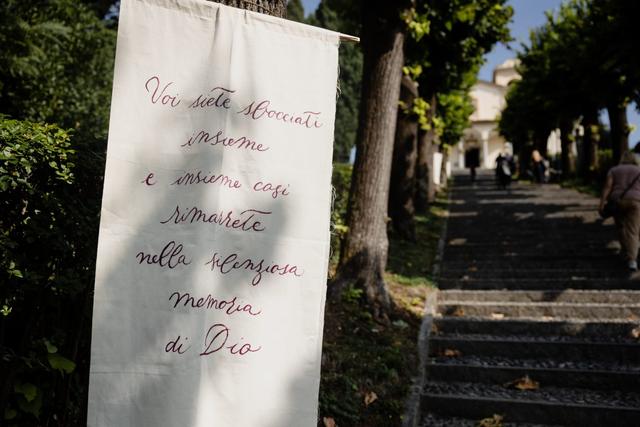 Voi siete sbocciati
insieme
e insieme cosi
rimarrete
nella silenziosa
memoria
di Dio